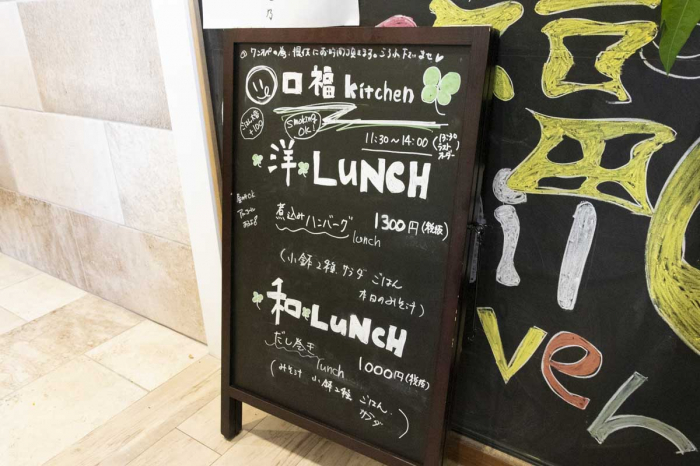 乃
ワンオペの為、提供にお時間頂きます。ご了承下さいませ
口福 kitchen
ごはん大盛
+100
Smoking
OK!
11:30～14:00
(13:30
ラスト
オーダー)
洋 LUNCH
煮込みハンバーグ
lunch
1300円(税抜)
(小鉢2種. サラダ ごはん
本日のみそ汁)
和 LUNCH
だし巻き
lunch
1000円(税抜)
(みそ汁 小鉢2種 ごはん.
サラダ)
ve